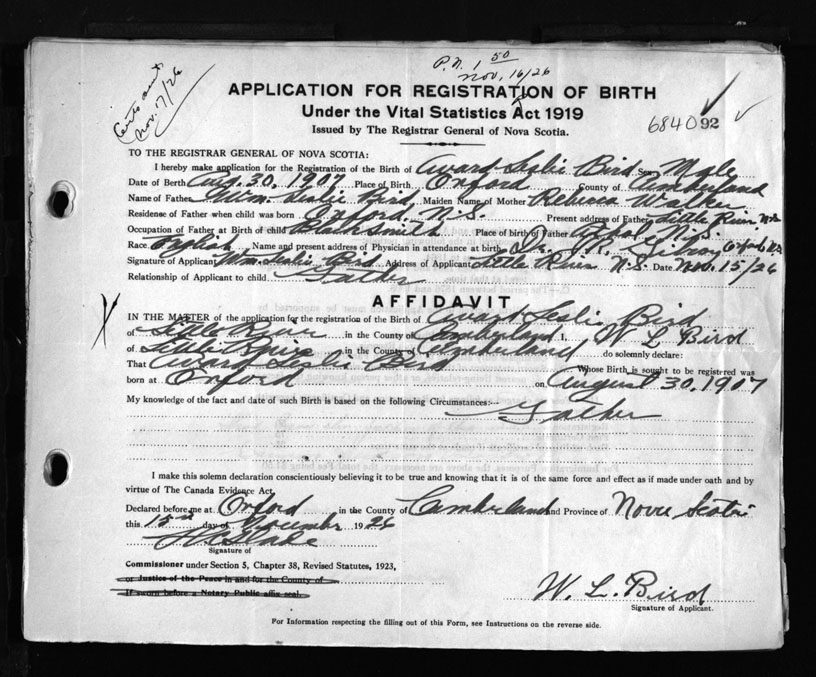 P.N. 1 50
Nov, 16/26
Nov. 7/26
APPLICATION FOR REGISTRATION OF BIRTH
Under the Vital Statistics Act 1919
Issued by The Registrar General of Nova Scotia.
684092
TO THE REGISTRAR GENERAL OF NOVA SCOTIA:
I hereby make application for the Registration of the Birth of Award Leslie Bird Sex Male
Date of Berth Aug. 30, 1907 Place of Birth Oxford County of Cumberland
Name of Father Wm. Leslie Bird, Maiden Name of Mother Rebecca Walker
Residense of Father when child was born Oxford, N.S. Present address of Father Little River N.S.
Occupation of Father at Birth of child Black Smith Place of birth of Father N.S.
Race English Name and present address of Physician in attendance at birth Dr.
Signature of Applicant Wm. Leslie Bird Address of Applicant Little River N.S. Date Nov. 15/26
Relationship of Applicant to child Father
AFFIDAVIT
IN THE MATTER of the application for the registration of the Birth of Award Leslie Bird
of Little River in the County of Cumberland I, W L Bird
of Little River in the County of Cumberland do solemnly declare:
That Award Leslie Bird Whose Birth is sought to be registered was
born at Oxford on August 30, 1907
My knowledge of the fact and date of such Birth is based on the following Circumstances:--
Father
I make this solemn declaration conscientiously believing it to be true and knowing that it is of the same force and effect as if made under oath and by
virtue of The Canada Evidence Act.
Declared before me at Oxford in the County of Cumberland and Province of Nova Scotia
this 15th day of November 1926
Signature of
Commissioner under Section 5, Chapter 38, Revised Statutes, 1923,
or Justice of the Peace in and for the County of
If sworn before a Notary Public affix seal.
W. L. Bird
Signature of Applicant.
For Information respecting the filling out of this Form, see Instructions on the reverse side.